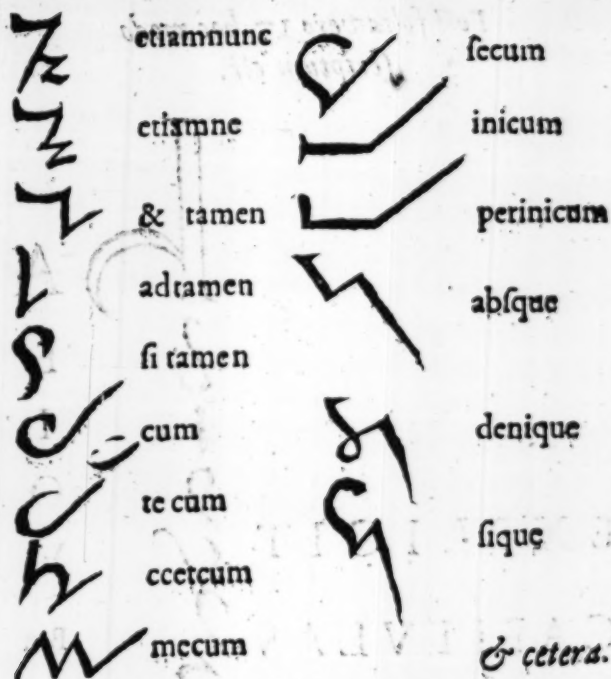 etiamnunc
etiamne
& tamen
adtamen
ſi tamen
cum
te cum
ccetcum
mecum
ſecum
inicum
perinicum
abſque
denique
ſique
& cetera.